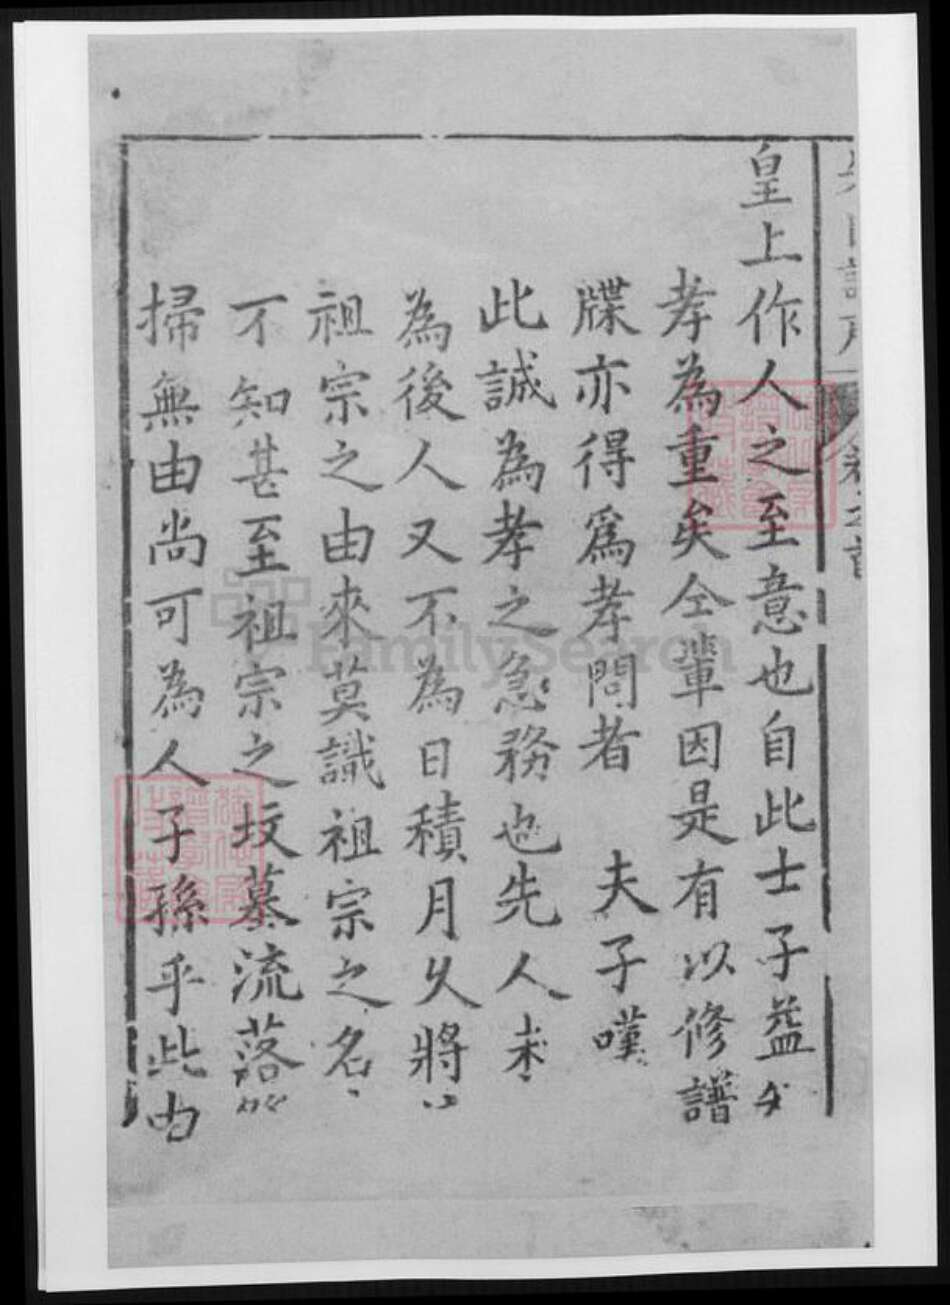 皇上作人之至意也自此士子益以
孝為重矣仝輩因是有以修譜
牒亦得爲孝問者 夫子嘆
此誠為孝之急務也先人未
為後人又不為日積月久將
祖宗之由來莫識祖宗之名
不知甚至祖宗之坟墓流落
掃無由尚可為人子孫乎此由
卷之首
FamilySearch